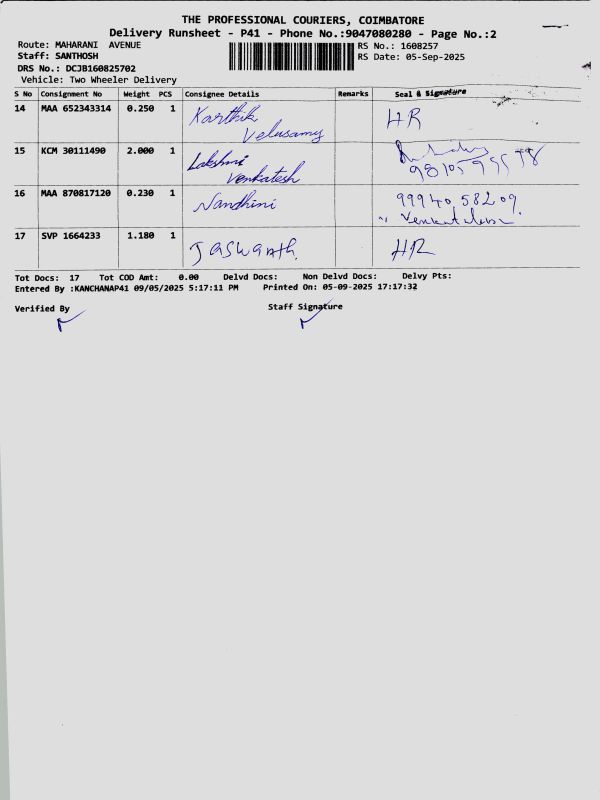 THE PROFESSIONAL COURIERS, COIMBATORE
Delivery Runsheet - P41 - Phone No.:9047080280 - Page No.:2
Route: MAHARANI AVENUE RS No.: 1608257
Staff: SANTHOSH RS Date: 05-Sep-2025
DRS No.: DCJB160825702
Vehicle: Two Wheeler Delivery
S No Consignment No Weight PCS Consignee Details Remarks Seal & Signature
14 MAA 652343314 0.250 1 Karthik Velusamy HR
15 KCM 30111490 2.000 1 Lakshmi Venkatesh
16 MAA 870817120 0.230 1 Nandhini 99940 58209
17 SVP 1664233 1.180 1 Jaswanth. HR
Tot Docs: 17 Tot COD Amt: 0.00 Delvd Docs: Non Delvd Docs: Delvy Pts:
Entered By :KANCHANAP41 09/05/2025 5:17:11 PM Printed On: 05-09-2025 17:17:32
Verified By Staff Signature